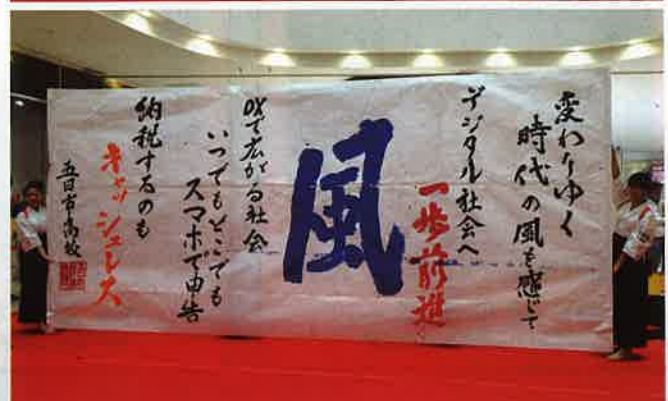 変わりゆく
時代の風を感じて
デジタル社会へ
一歩前進
風
DXで広がる社会
いつでもどこでも
スマホで申告
納税するのも
キャッシュレス
五日市高校